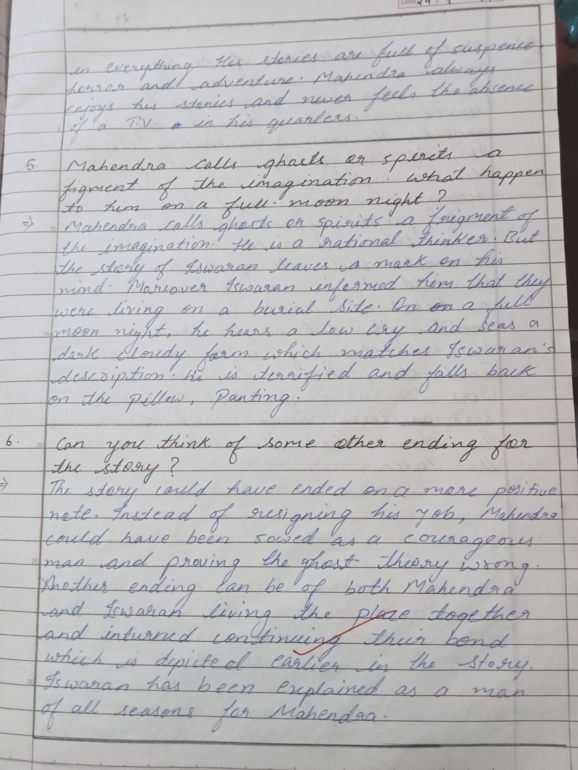 in everything. His stories are full of suspence,
horror and adventure. Mahendra always
enjoys his stories and never feels the absence
of a T.V. in his quarters.
5. Mahendra calls ghosts or spirits a
figment of the imagination. What happen
to him on a full-moon night?
⇒ Mahendra calls ghosts or spirits a frigment of
the imagination. He is a rational thinker. But
the story of Iswaran leaves a mark on his
mind. Moreover Iswaran informed him that they
were living on a burial site. On a full
moon night, he hears a low cry and seas a
dark cloudy form which matches Iswaran's
description. He is terrified and falls back
on the pillow, Panting.
6. Can you think of some other ending for
the story?
⇒ The story could have ended on a more positive
note. Instead of resigning his job, Mahendra
could have been sowed as a courageous
man and proving the ghost theory wrong.
Another ending can be of both Mahendra
and Iswaran living the place together
and inturned continuing their bond
which is depicted earlier in the story.
Iswaran has been explained as a man
of all seasons for Mahendra.